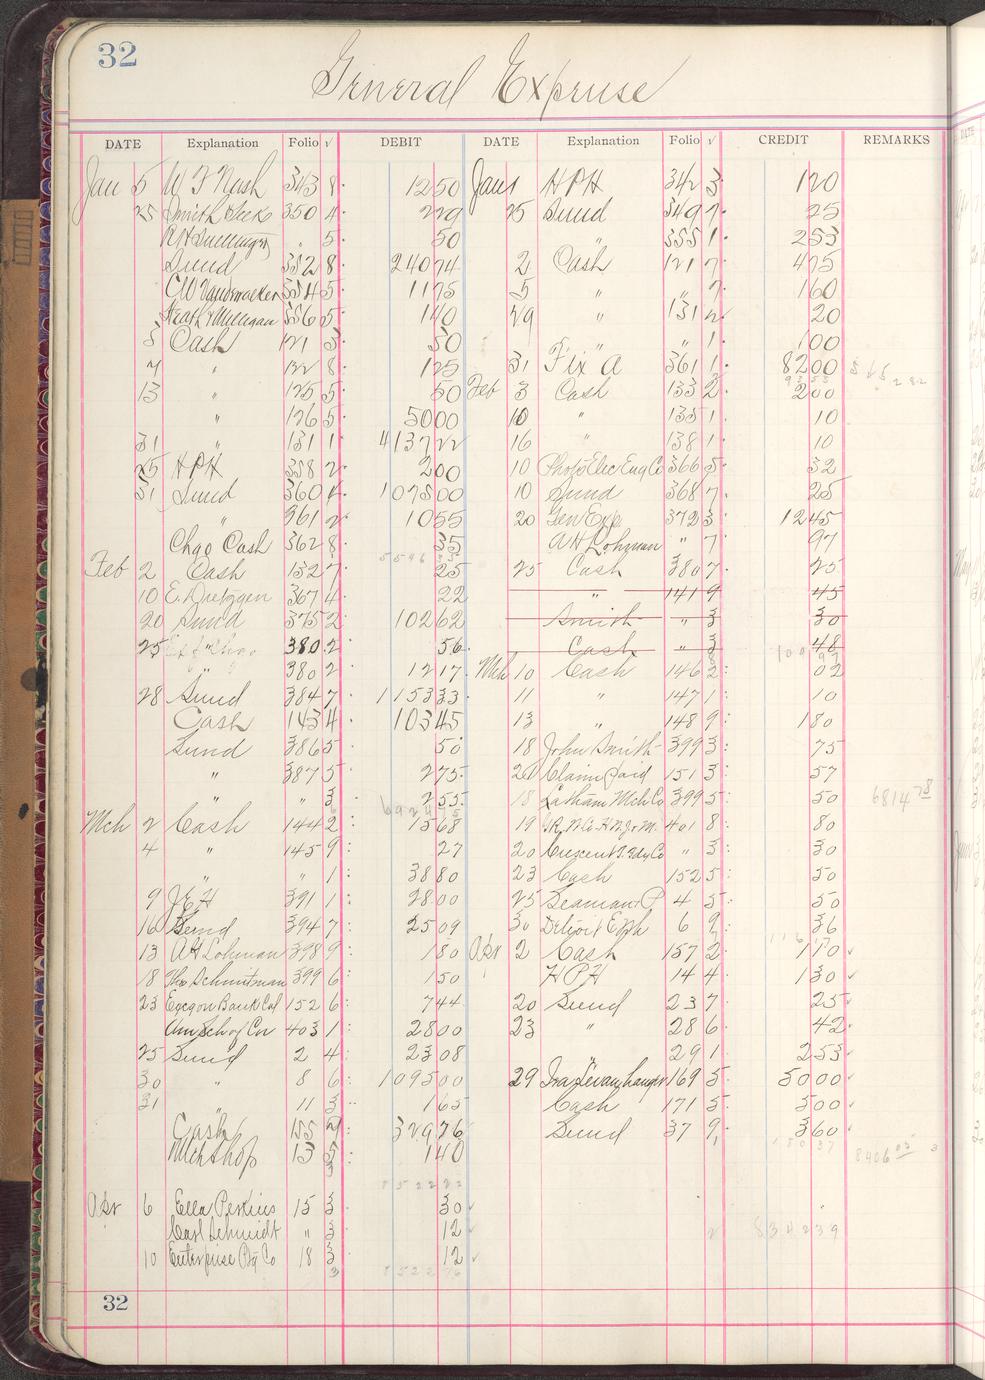 32
General Expense
DATE Explanation Folio √ DEBIT DATE Explanation Folio √ CREDIT REMARKS
Jan 5 W F Nash 343 8 12 50 Jan 1 H P H 342 3 1 20
25 Smith & 350 4 2 29 25 Sund 349 7 25
R H 5 50 " 355 1 2 53
Sund 352 8 240 74 2 Cash 121 7 4 75
C W Vanderwacker 354 5 11 75 5 " " 7 1 60
Heath & Milligan 356 5 1 40 29 " 131 2 20
5 Cash 121 3 50 " " 1 1 00
7 " 122 8 1 25 31 Fix A 361 1 82 00
13 " 125 5 50 Feb 3 Cash 133 2 2 00
" 126 5 50 00 10 " 135 1 10
31 " 131 1 4137 22 16 " 138 1 10
25 H P H 358 2 2 00 10 Photo Elec Eng Co 366 5 32
31 Sund 360 4 1075 00 10 Sund 368 7 25
" 361 2 10 55 20 Gen Exp 372 3 12 45
Chgo Cash 362 8 35 A H Lohman " 7 97
Feb 2 Cash 132 7 25 25 Cash 380 7 25
10 E. Dietzgen 367 4 22 " 141 9 45
20 Sund 375 2 102 62 Smith " 3 30
25 380 2 56 Cash " 3 48
" " 380 2 12 17 Mch 10 Cash 146 2 02
28 Sund 384 7 1153 33 11 " 147 1 10
Cash 143 4 103 45 13 " 148 9 1 80
Sund 386 5 50 18 John Smith 399 3 75
" 387 5 2 75 20 Claim paid 151 3 57
" " 3 2 55 18 Latham Mch Co 399 5 50 6814 78
Mch 2 Cash 144 2 15 68 19 401 8 80
4 " 145 9 27 20 Crescent Co " 3 30
" " 1 38 80 23 Cash 152 5 50
9 J E H 391 1 28 00 25 Seaman P 4 5 50
16 Sund 394 7 25 09 30 Detroit 6 9 36
13 A H Lohman 398 9 1 80 Apr 2 Cash 157 2 1 10
18 Theo Schmitman 399 6 1 50 H P H 14 4 1 30
23 152 6 7 44 20 Sund 23 7 25
Am Sch of Cor 403 1 28 00 23 " 28 6 42
25 Sund 2 4 23 08 " 29 1 2 53
30 " 8 6 1095 00 29 Ira 169 5 50 00
31 " 11 3 1 65 Cash 171 5 5 00
Cash 155 2 329 76 Sund 37 9 3 60
Mch Shop 13 5 1 40
Apr 6 Ella Perkins 15 3 30
Carl Schmidt " 3 12 834239
10 Enterprise Ptg Co 18 3 12
32